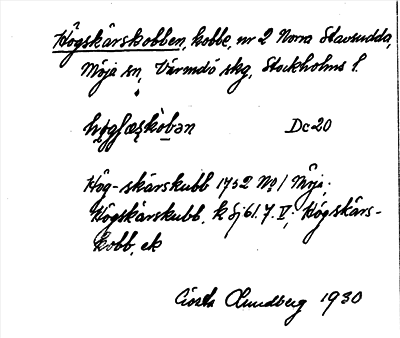 Högskärskobben, kobbe, nr 2 Norra Stavsudda,
Möja sn, Värmdö skg, Stockholms l.
Dc 20
Hög-skärskubb 1752 No 1 Möja.
Högskärskubb, k Sj 61.7.V; Högskärs-
kobb, ek
Gösta Lundberg 1930